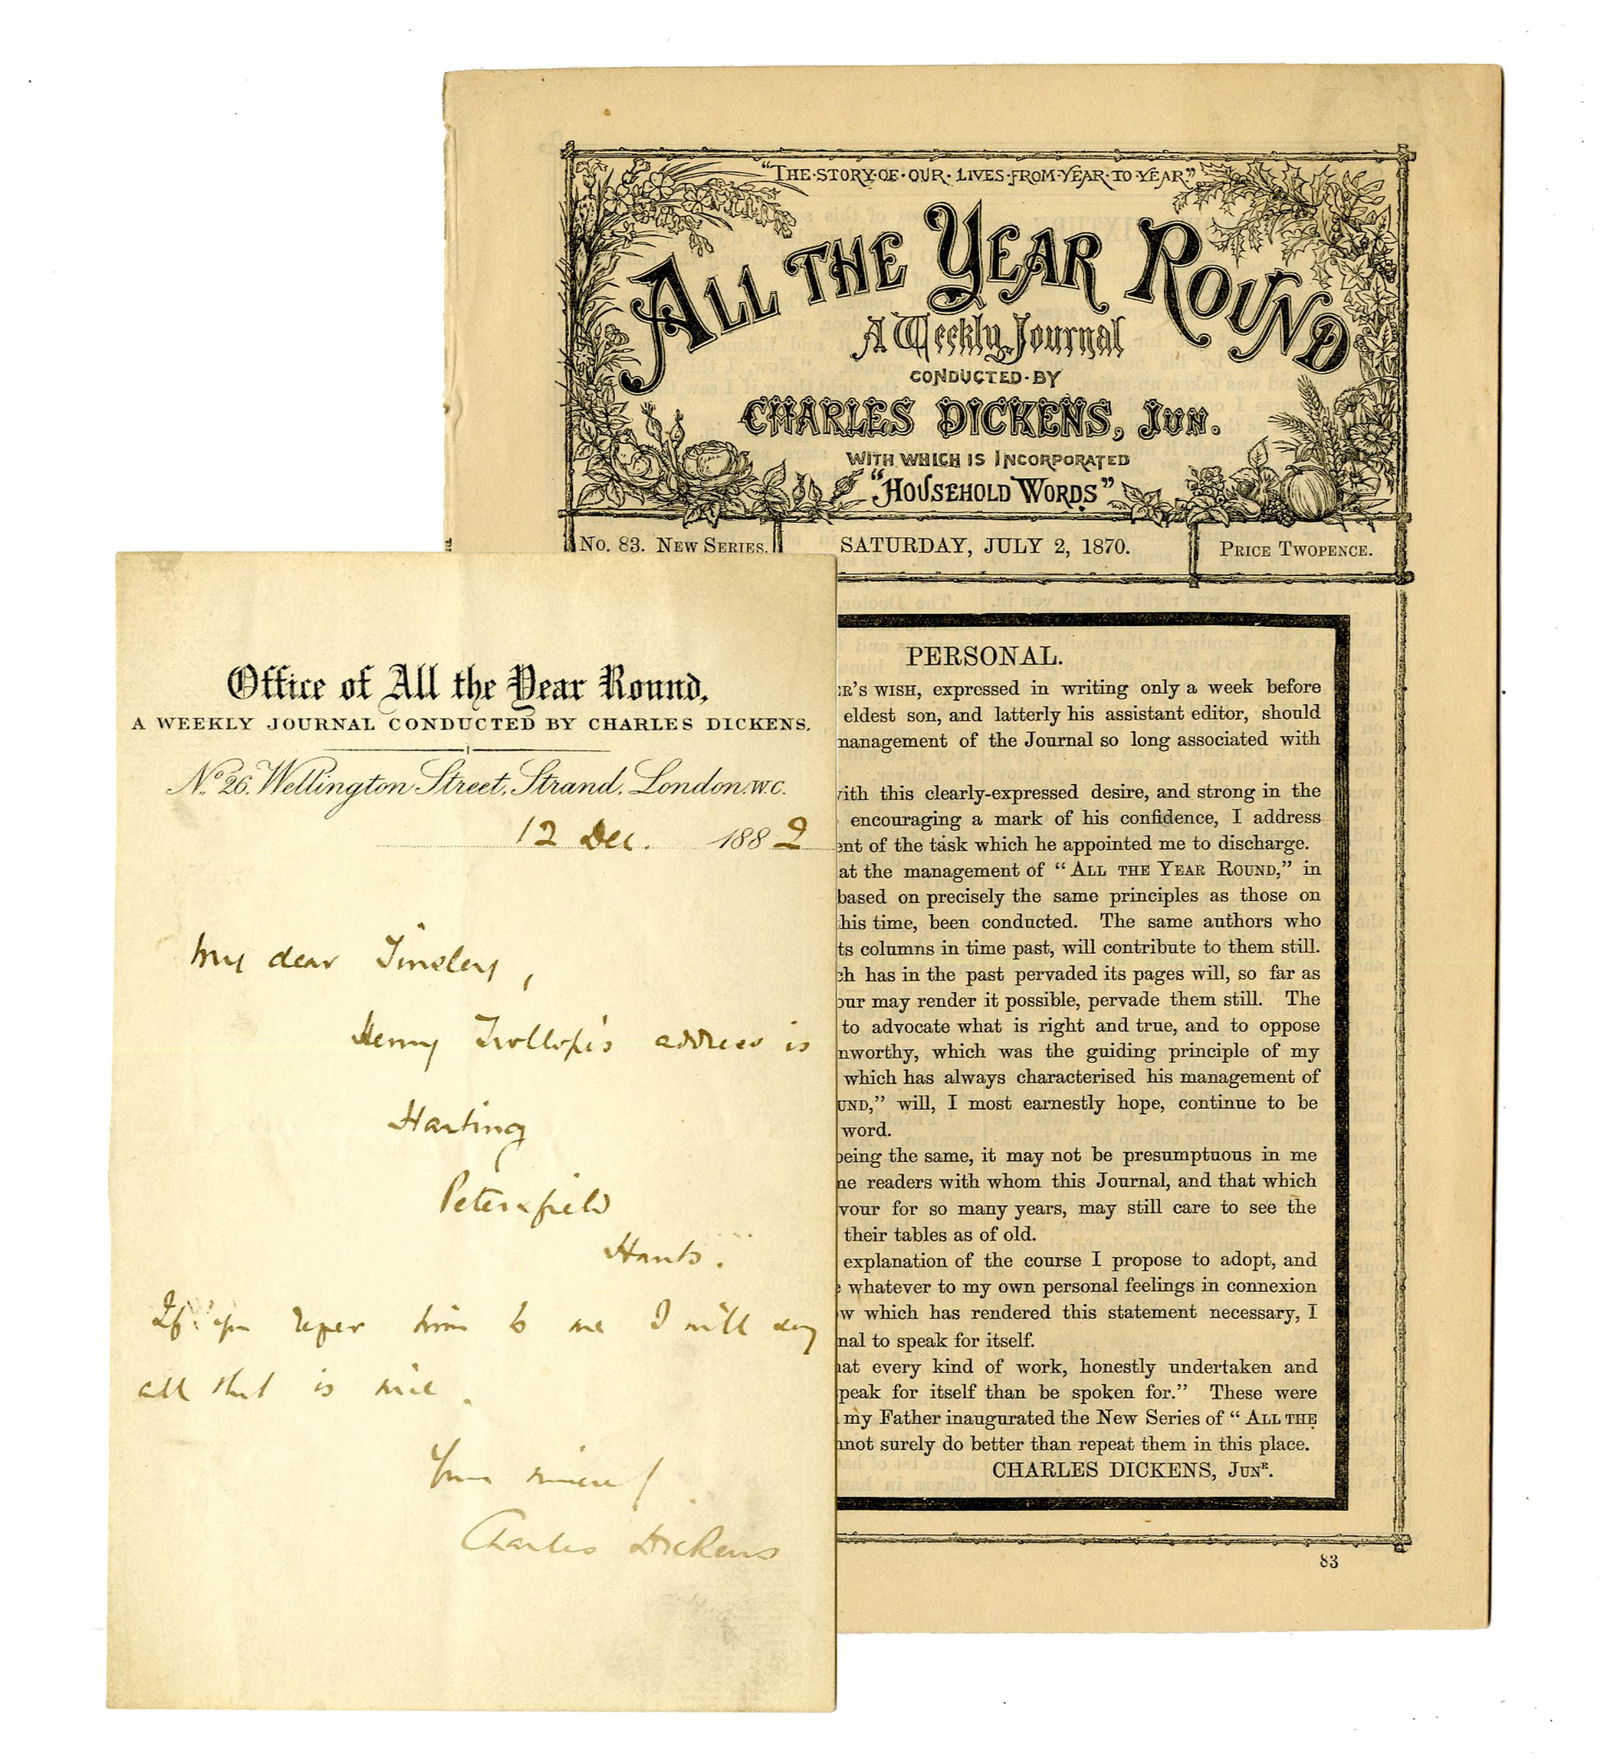 "THE·STORY·OF·OUR·LIVES·FROM·YEAR·TO·YEAR"
ALL THE YEAR ROUND
A Weekly Journal
CONDUCTED·BY
CHARLES DICKENS, JUN.
WITH WHICH IS INCORPORATED
"HOUSEHOLD WORDS"
No. 83. NEW SERIES.
SATURDAY, JULY 2, 1870.
PRICE TWOPENCE.
PERSONAL.
R'S WISH, expressed in writing only a week before
eldest son, and latterly his assistant editor, should
management of the Journal so long associated with
with this clearly-expressed desire, and strong in the
encouraging a mark of his confidence, I address
ent of the task which he appointed me to discharge.
at the management of "ALL THE YEAR ROUND," in
based on precisely the same principles as those on
his time, been conducted. The same authors who
ts columns in time past, will contribute to them still.
ch has in the past pervaded its pages will, so far as
our may render it possible, pervade them still. The
to advocate what is right and true, and to oppose
nworthy, which was the guiding principle of my
which has always characterised his management of
UND," will, I most earnestly hope, continue to be
word.
being the same, it may not be presumptuous in me
ne readers with whom this Journal, and that which
vour for so many years, may still care to see the
their tables as of old.
explanation of the course I propose to adopt, and
e whatever to my own personal feelings in connexion
w which has rendered this statement necessary, I
nal to speak for itself.
at every kind of work, honestly undertaken and
peak for itself than be spoken for." These were
my Father inaugurated the New Series of "ALL THE
nnot surely do better than repeat them in this place.
CHARLES DICKENS, JUNR.
83
Office of All the Year Round,
A WEEKLY JOURNAL CONDUCTED BY CHARLES DICKENS.
No. 26, Wellington Street, Strand, London. W.C.
12 Dec. 1882
My dear Tinsley,
Henry Trollope's address is
Harting
Petersfield
Hants.
If you refer him to me I will say
all that is nice.
Yours sincerely
Charles Dickens